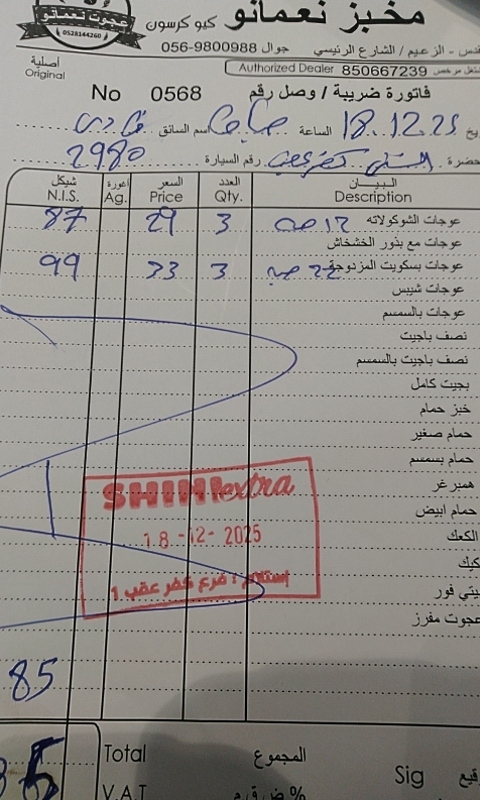 مخبز نعمانو
كيو كرسون
عجوت نعمانو
0528144260
قدس - الزعيم / الشارع الرئيسي جوال 056-9800988
أصلية
Original
شتغل مرخص 850667239 Authorized Dealer
فاتورة ضريبة / وصل رقم No 0568
18.12.25 الساعة اسم السائق
حضرة رقم السيارة 2980
البيـــان Description العدد Qty. السعر Price اغورة Ag. شيكل N.I.S.
عوجات الشوكولاته 3 29 87
عوجات مع بذور الخشخاش
عوجات بسكويت المزدوجة 3 33 99
عوجات شيبس
عوجات بالسمسم
نصف باجيت
نصف باجيت بالسمسم
بجيت كامل
خبز حمام
حمام صغير
حمام بسمسم
همبرغر
حمام ابيض
الكعك
كيك
بيتي فور
عجوت مفرز
SHINI extra
18-12-2025
إستلام : فرع كفر عقب 1
85
Total المجموع
V.A.T % ض.ق.م
Sig